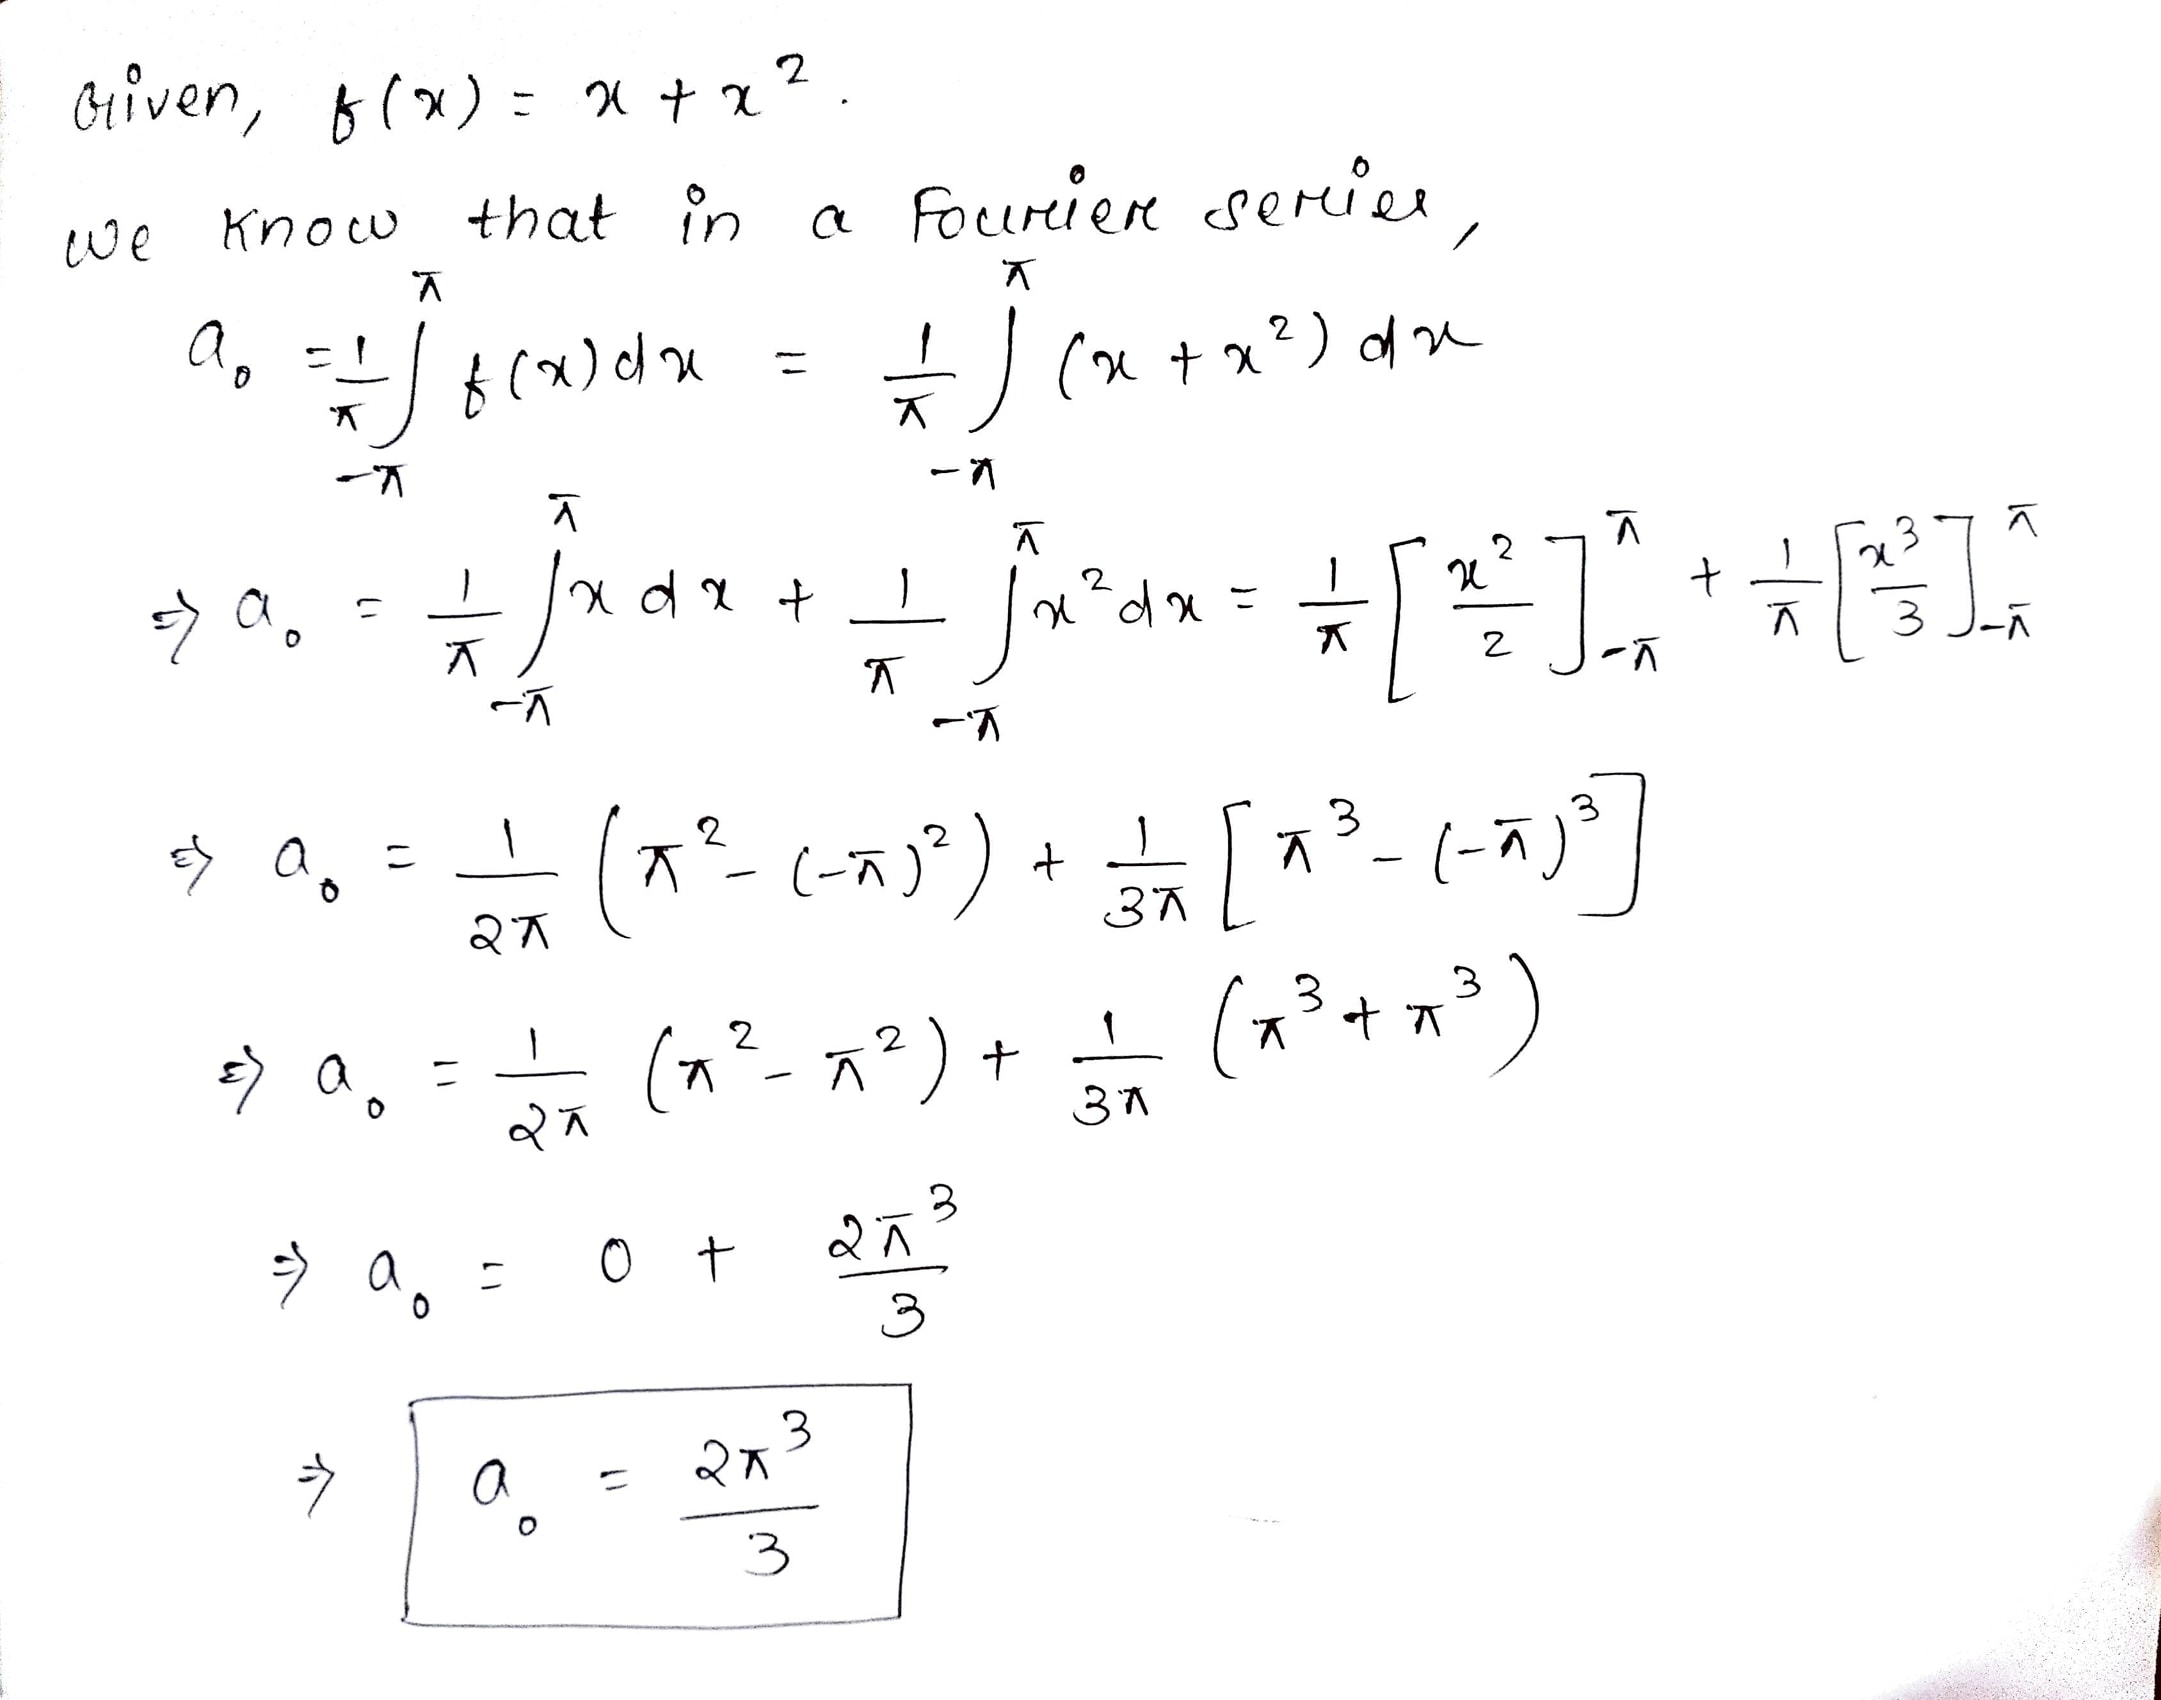 Given, f(x) = x + x².
We know that in a Fourier series,
a₀ = 1/π ∫_{-π}^{π} f(x) dx = 1/π ∫_{-π}^{π} (x + x²) dx
⇒ a₀ = 1/π ∫_{-π}^{π} x dx + 1/π ∫_{-π}^{π} x² dx = 1/π [x²/2]_{-π}^{π} + 1/π [x³/3]_{-π}^{π}
⇒ a₀ = 1/2π (π² - (-π)²) + 1/3π [π³ - (-π)³]
⇒ a₀ = 1/2π (π² - π²) + 1/3π (π³ + π³)
⇒ a₀ = 0 + 2π³/3
⇒ a₀ = 2π³/3